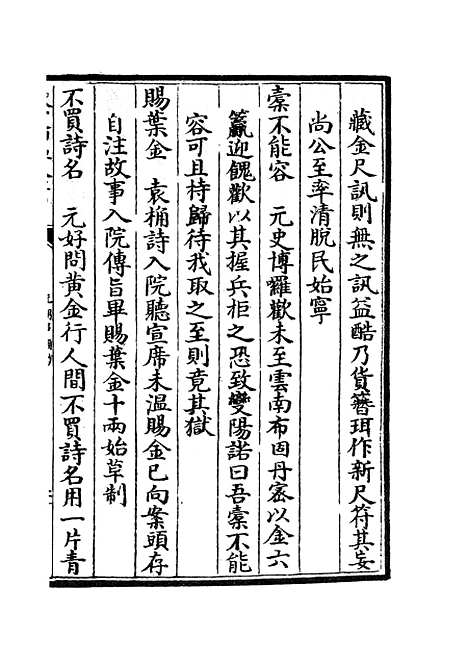 藏金尺訊則無之訊益酷乃貨簪珥作新尺符其妄
尚公至率清脫民始寧
橐不能容　元史博羅歡未至雲南布固丹密以金六
籯迎餽歡以其握兵柜之恐致變陽諾曰吾橐不能
容可且持歸待我取之至則竟其獄
賜葉金　袁桷詩入院聽宣席未溫賜金已向案頭存
自注故事入院傳旨畢賜葉金十兩始草制
不買詩名　元好問黄金行人間不買詩名用一片青